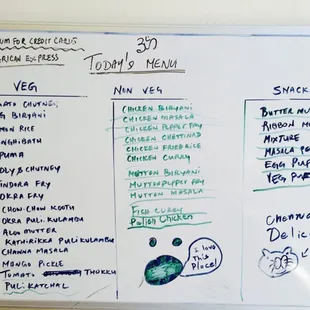 ॐ
UM FOR CREDIT CARDS
RICAN EXPRESS
TODAY'S MENU
VEG
ATO CHUTNEY
G BIRYANI
MON RICE
NGHIBATH
PUMA
DLY & CHUTNEY
INDORA FRY
OKRA FRY
CHOW-CHOW KOOTU
OKRA PULI.KULAMBU
ALOO MUTTER
KATHIRIKKA PULI KULAMBU
CHANNA MASALA
MANGO PICKLE
TOMATO THOKKU
PULI KATCHAL
NON VEG
CHICKEN BIRYANI
CHICKEN MASALA
CHICKEN PEPPER FRY
CHICKEN CHETTINAD
CHICKEN FRIED RICE
CHICKEN CURRY
MUTTON BIRYANI
MUTTON PEPPER FRY
MUTTON MASALA
FISH CURRY
CHICKEN
i love
This
Place!
SNACK
BUTTER MU
RIBBON MU
MIXTURE
MASALA P
EGG PUFF
VEG PUFF
CHENNA
DELIC